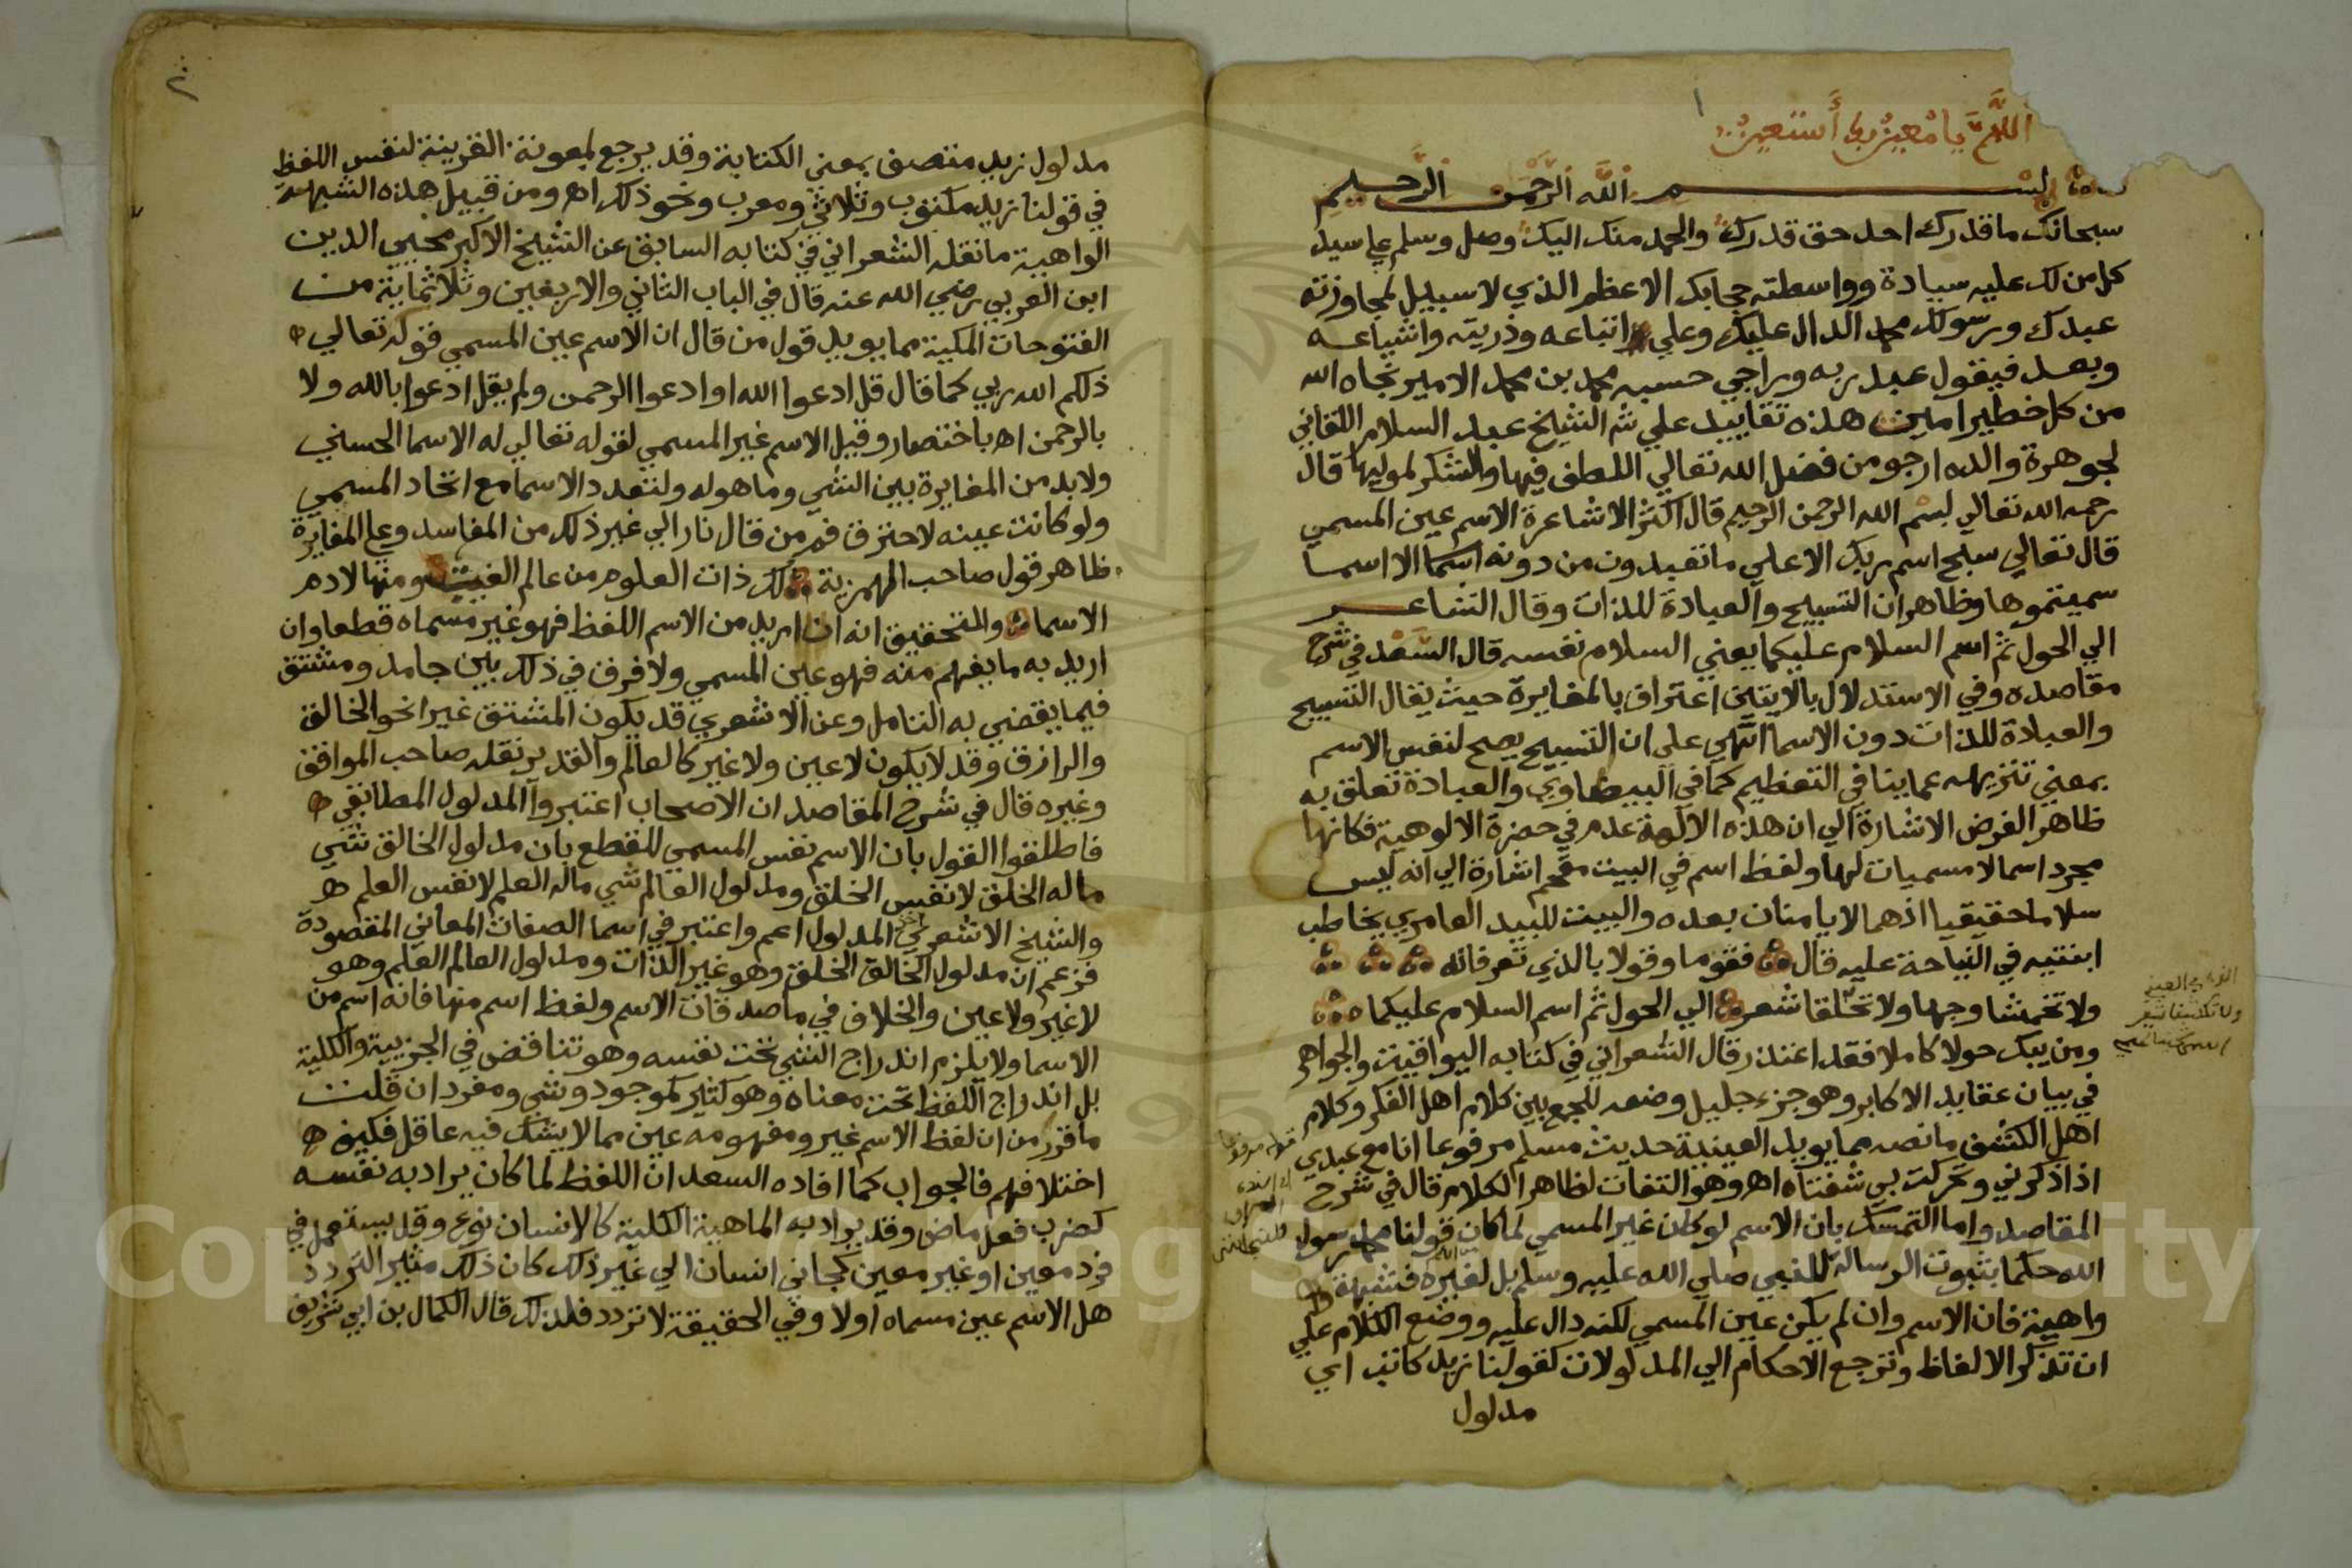 اللهم يا معين بك أستعين
١
بسم الله الرحمن الرحيم
سبحانك ما قدرك احد حق قدرك والحمد منك اليك وصل وسلم علي سيد
كل من لك عليه سيادة وواسطته حجابك الاعظم الذي لا سبيل لمجاوزته
عبدك ورسولك محمد الدال عليك وعلي اتباعه وذريته واشياعه
وبعد فيقول عبد ربه وراجي حسبه محمد بن محمد الامير نجاه الله
من كل خطير امين هذه تقاييد علي ش الشيخ عبد السلام اللقاني
لجوهرة والده ارجو من فضل الله تعالي اللطف فيها والشكر لموليها قال
رحمه الله تعالي بسم الله الرحمن الرحيم قال اكثر الاشاعرة الاسم عين المسمي
قال تعالي سبح اسم ربك الاعلي ما تعبدون من دونه اسما الا اسما
سميتموها وظاهر ان التسبيح والعبادة للذات وقال الشاعر
الي الحول ثم اسم السلام عليكما يعني السلام نفسه قال السعد في شرح
مقاصده وفي الاستدلال بالايتين اعتراف بالمغايرة حيث يقال التسبيح
والعبادة للذات دون الاسما انتهي علي ان التسبيح يصح لنفس الاسم
بمعني تنزيهه عما ينافي التعظيم كما في البيضاوي والعبادة تعلق به
ظاهر الغرض الاشارة الي ان هذه الالهة عدم في حضرة الالوهية فكانها
مجرد اسما لا مسميات لها ولفظ اسم في البيت مقحم اشارة الي انه ليس
سلاما حقيقيا اذ هما لا يامنان بعده والبيت للبيد العامري يخاطب
ابنتيه في النياحة عليه قال فقوما وقولا بالذي تعرفانه
ولا تخمشا وجها ولا تحلقا شعر الي الحول ثم اسم السلام عليكما
ومن يبك حولا كاملا فقد اعتذر قال الشعراني في كتابه اليواقيت والجواهر
في بيان عقايد الاكابر وهو جزء جليل وضعه للجمع بين كلام اهل الفكر وكلام
اهل الكشف ما نصه مما يويد العينية حديث مسلم مرفوعا انا مع عبدي
اذا ذكرني وتحركت بي شفتاه اه وهو التفات لظاهر الكلام قال في شرح
المقاصد واما التمسك بان الاسم لو كان غير المسمي لما كان قولنا محمد رسول
الله حكما بثبوت الرسالة للنبي صلي الله عليه وسلم بل لغيره فشبهة
واهية فان الاسم وان لم يكن عين المسمي لكنه دال عليه ووضع الكلام علي
ان تذكر الالفاظ وترجع الاحكام الي المدلولات كقولنا زيد كاتب اي
مدلول
٢
مدلول زيد متصف بمعني الكتابة وقد يرجع بمعونة القرينة لنفس اللفظ
في قولنا زيد مكتوب وثلاثي ومعرب ونحو ذلك اه ومن قبيل هذه الشبهة
الواهية ما نقله الشعراني في كتابه السابق عن الشيخ الاكبر محيي الدين
ابن العربي رضي الله عنه قال في الباب الثاني والاربعين وثلاثماية من
الفتوحات المكية مما يويد قول من قال ان الاسم عين المسمي قوله تعالي
ذلكم الله ربي كما قال قل ادعوا الله او ادعوا الرحمن ولم يقل ادعوا بالله ولا
بالرحمن اه باختصار وقيل الاسم غير المسمي لقوله تعالي له الاسما الحسني
ولا بد من المغايرة بين الشي وما هو له ولتعدد الاسما مع اتحاد المسمي
ولو كانت عينه لاحترق فم من قال نار الي غير ذلك من المفاسد وعلي المغايرة
ظاهر قول صاحب الهمزية لك ذات العلوم من عالم الغيب ومنها لادم
الاسما والتحقيق انه ان اريد من الاسم اللفظ فهو غير مسماه قطعا وان
اريد به ما يفهم منه فهو عين المسمي ولا فرق في ذلك بين جامد ومشتق
فيما يقضي به التامل وعن الاشعري قد يكون المشتق غيرا نحو الخالق
والرازق وقد لا يكون لا عين ولا غير كالعالم والقدير نقله صاحب المواقف
وغيره قال في شرح المقاصد ان الاصحاب اعتبروا المدلول المطابقي
فاطلقوا القول بان الاسم نفس المسمي للقطع بان مدلول الخالق شي
ماله الخلق لا نفس الخلق ومدلول العالم شي ماله العلم لا نفس العلم
والشيخ الاشعري المدلول اعم واعتبر في اسما الصفات المعاني المقصودة
فزعم ان مدلول الخالق الخلق وهو غير الذات ومدلول العالم العلم وهو
لا غير ولا عين والخلاف في ماصدقات الاسم ولفظ اسم منها فانه اسم من
الاسما ولا يلزم اندراج الشي تحت نفسه وهو تناقض في الجزيية والكلية
بل اندراج اللفظ تحت معناه وهو كثير كموجود وشي ومفرد ان قلت
ما قرر من ان لفظ الاسم غير ومفهومه عين مما لا يشك فيه عاقل فكيف
اختلافهم فالجواب كما افاده السعد ان اللفظ لما كان يراد به نفسه
كضرب فعل ماض وقد يراد به الماهية الكلية كالانسان نوع وقد يستعمل في
فرد معين او غير معين كجاني انسان الي غير ذلك كان ذلك مثير التردد
هل الاسم عين مسماه اولا وفي الحقيقة لا تردد فلذلك قال الكمال بن ابي شريف
Copyright © King Saud University